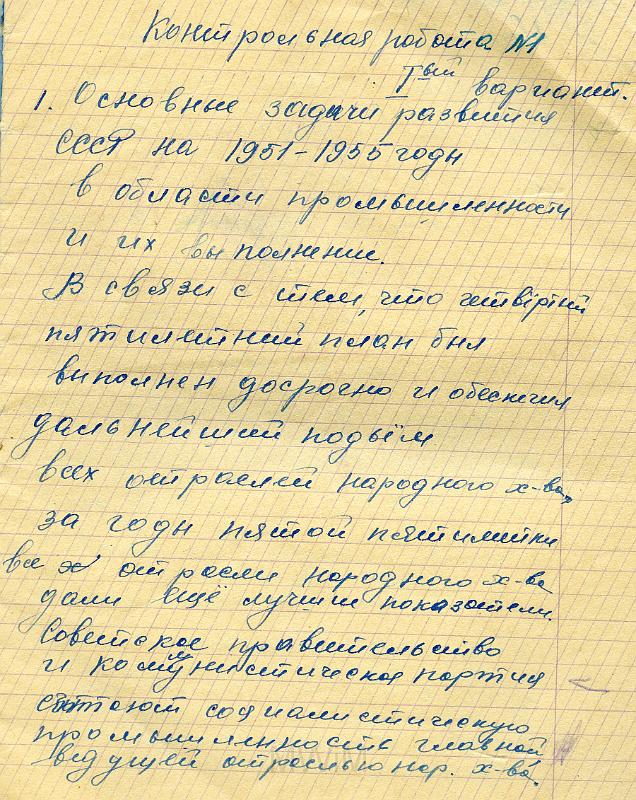 Контрольная работа №1
Iый вариант.
1. Основные задачи развития
СССР на 1951-1955 годы
в области промышленности
и их выполнение.
В связи с тем, что четвёртый
пятилетний план был
выполнен досрочно и обеспечил
дальнейший подъём
всех отраслей народного х-ва,
за годы пятой пятилетки
все отрасли народного х-ва
дали ещё лучшие показатели.
Советское правительство
и коммунистическая партия
считают социалистическую
промышленность главной
ведущей отраслью нар. х-ва.